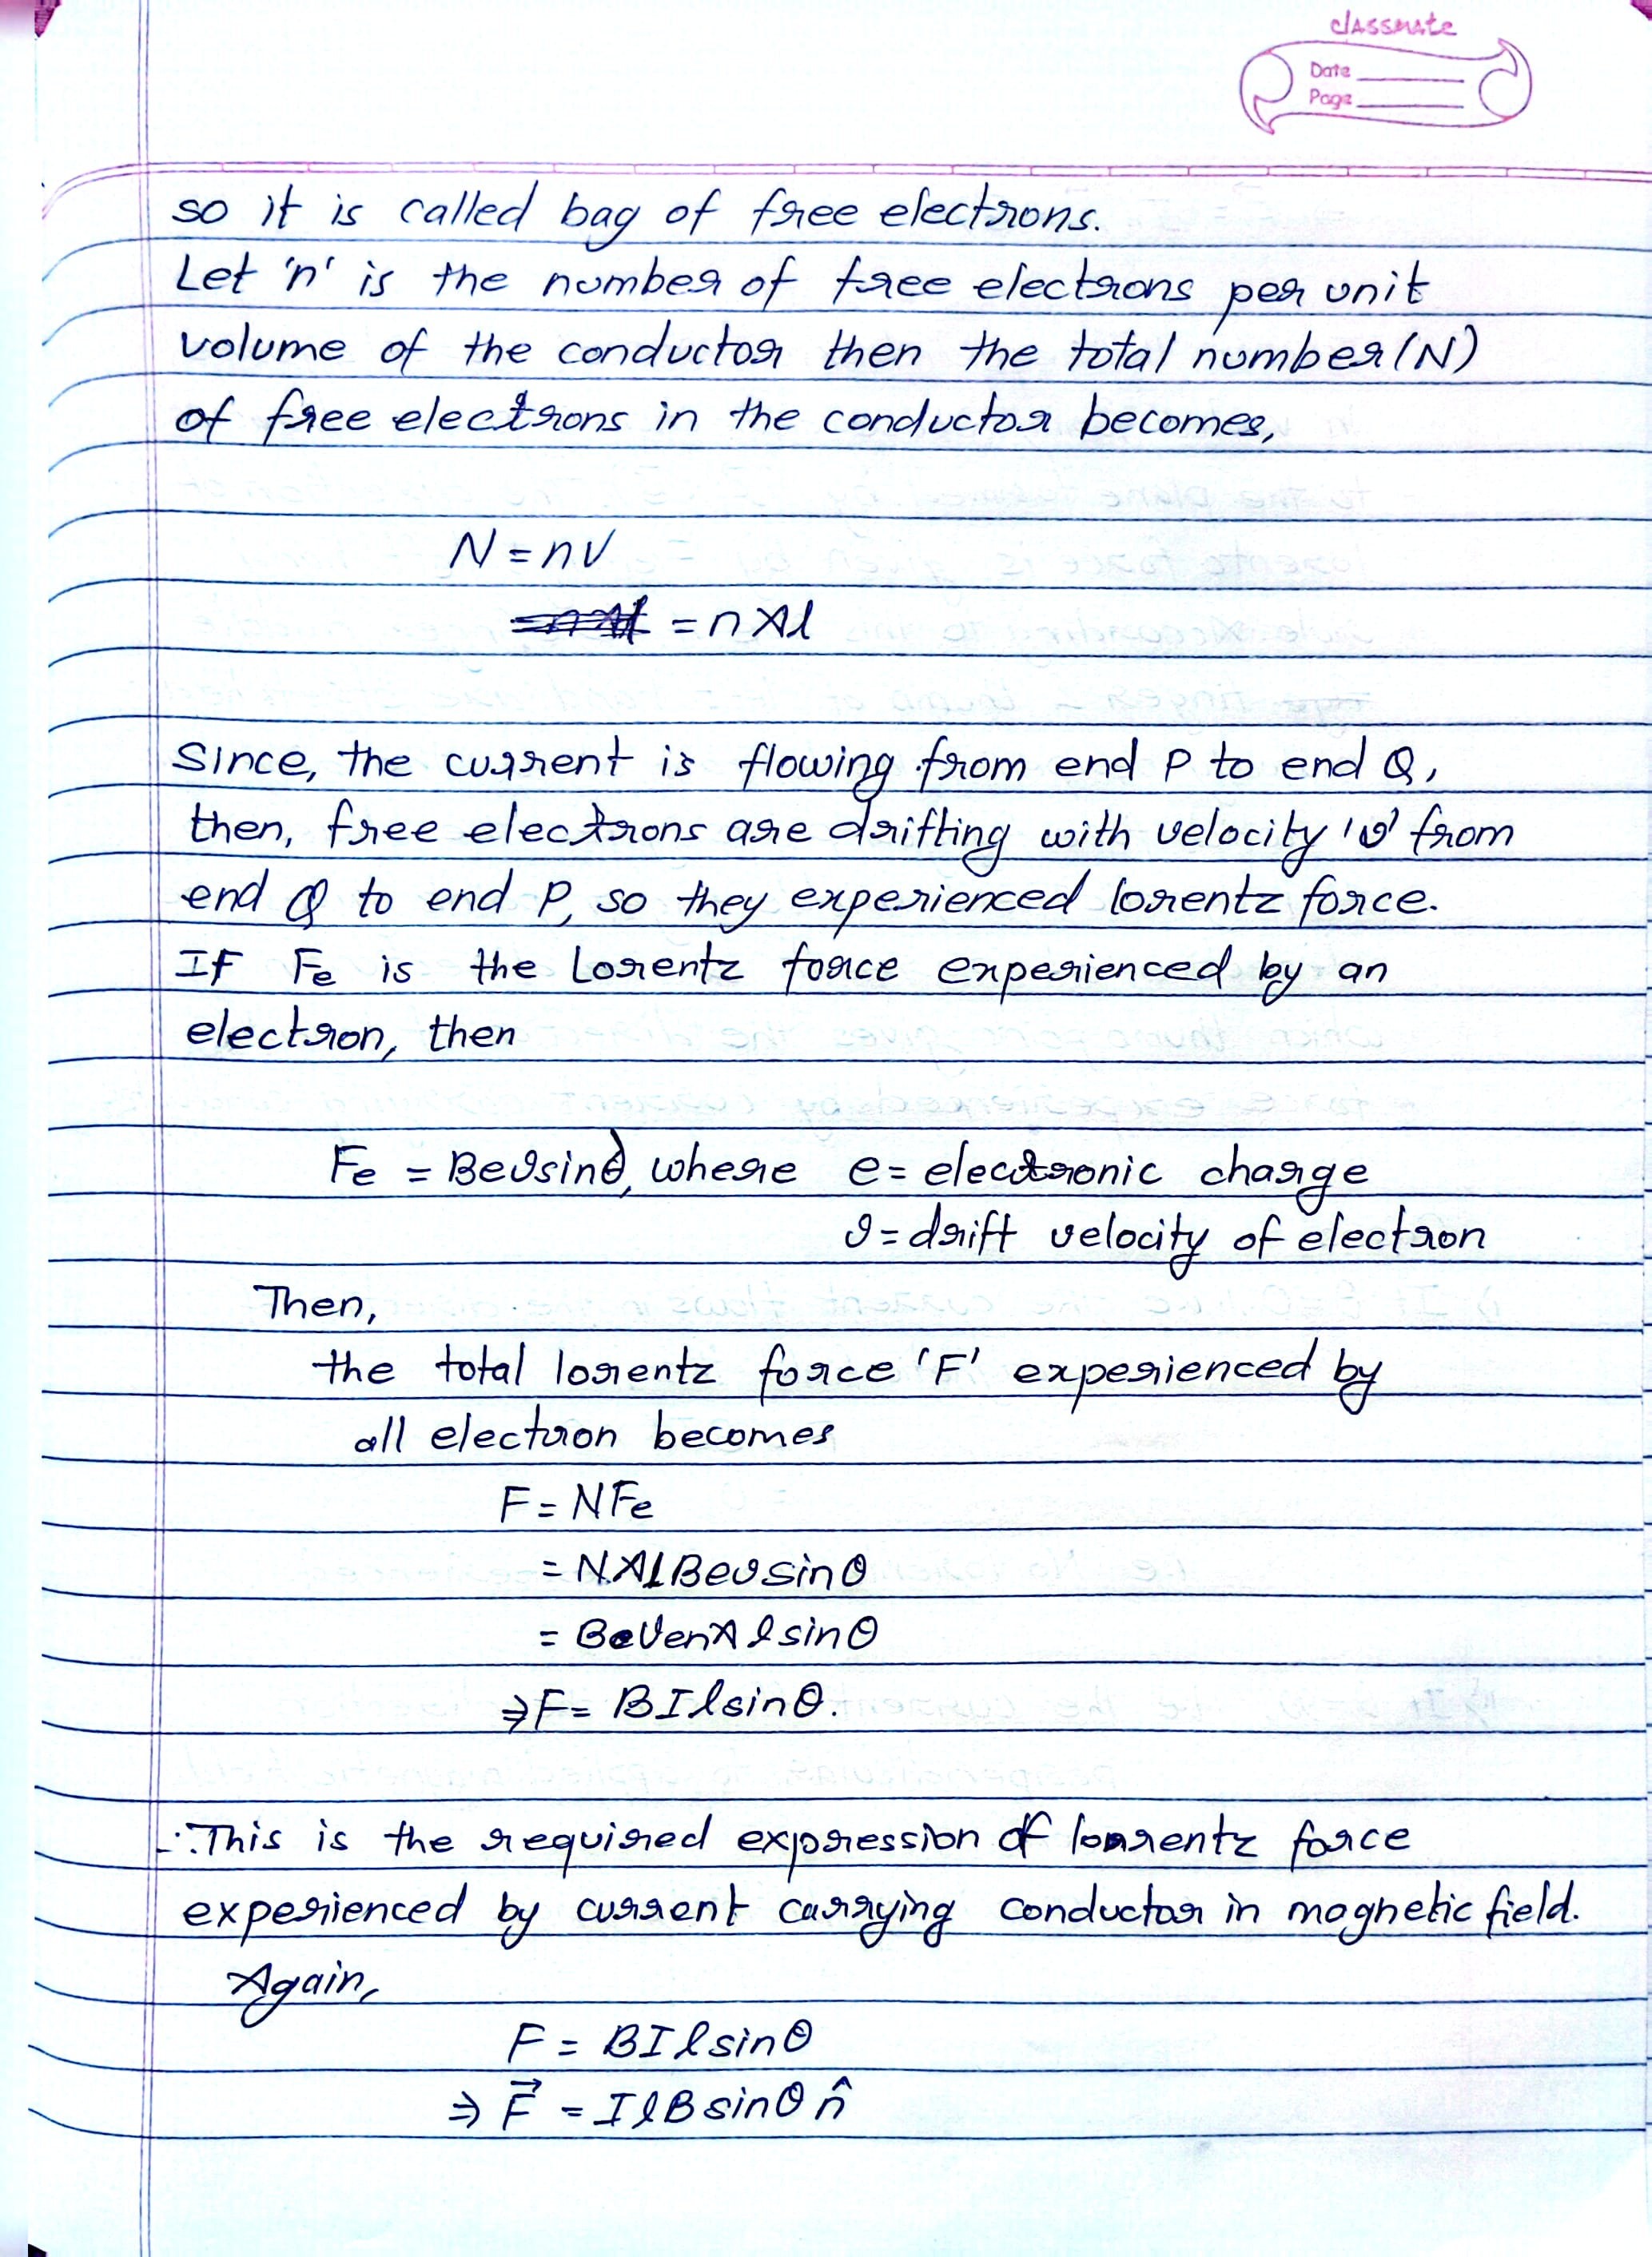 classmate
Date
Page
so it is called bag of free electrons.
Let 'n' is the number of free electrons per unit
volume of the conductor then the total number (N)
of free electrons in the conductor becomes,
N = nV
= nAl
Since, the current is flowing from end P to end Q,
then, free electrons are drifting with velocity 'v' from
end Q to end P, so they experienced lorentz force.
If Fe is the Lorentz force experienced by an
electron, then
Fe = Bevsinθ, where e = electronic charge
v = drift velocity of electron
Then,
the total lorentz force 'F' experienced by
all electron becomes
F = NFe
= NAlBevsinθ
= BevenAlsinθ
⇒ F = BIlsinθ.
∴ This is the required expression of lorentz force
experienced by current carrying conductor in magnetic field.
Again,
F = BIlsinθ
⇒ F⃗ = IlBsinθ n̂